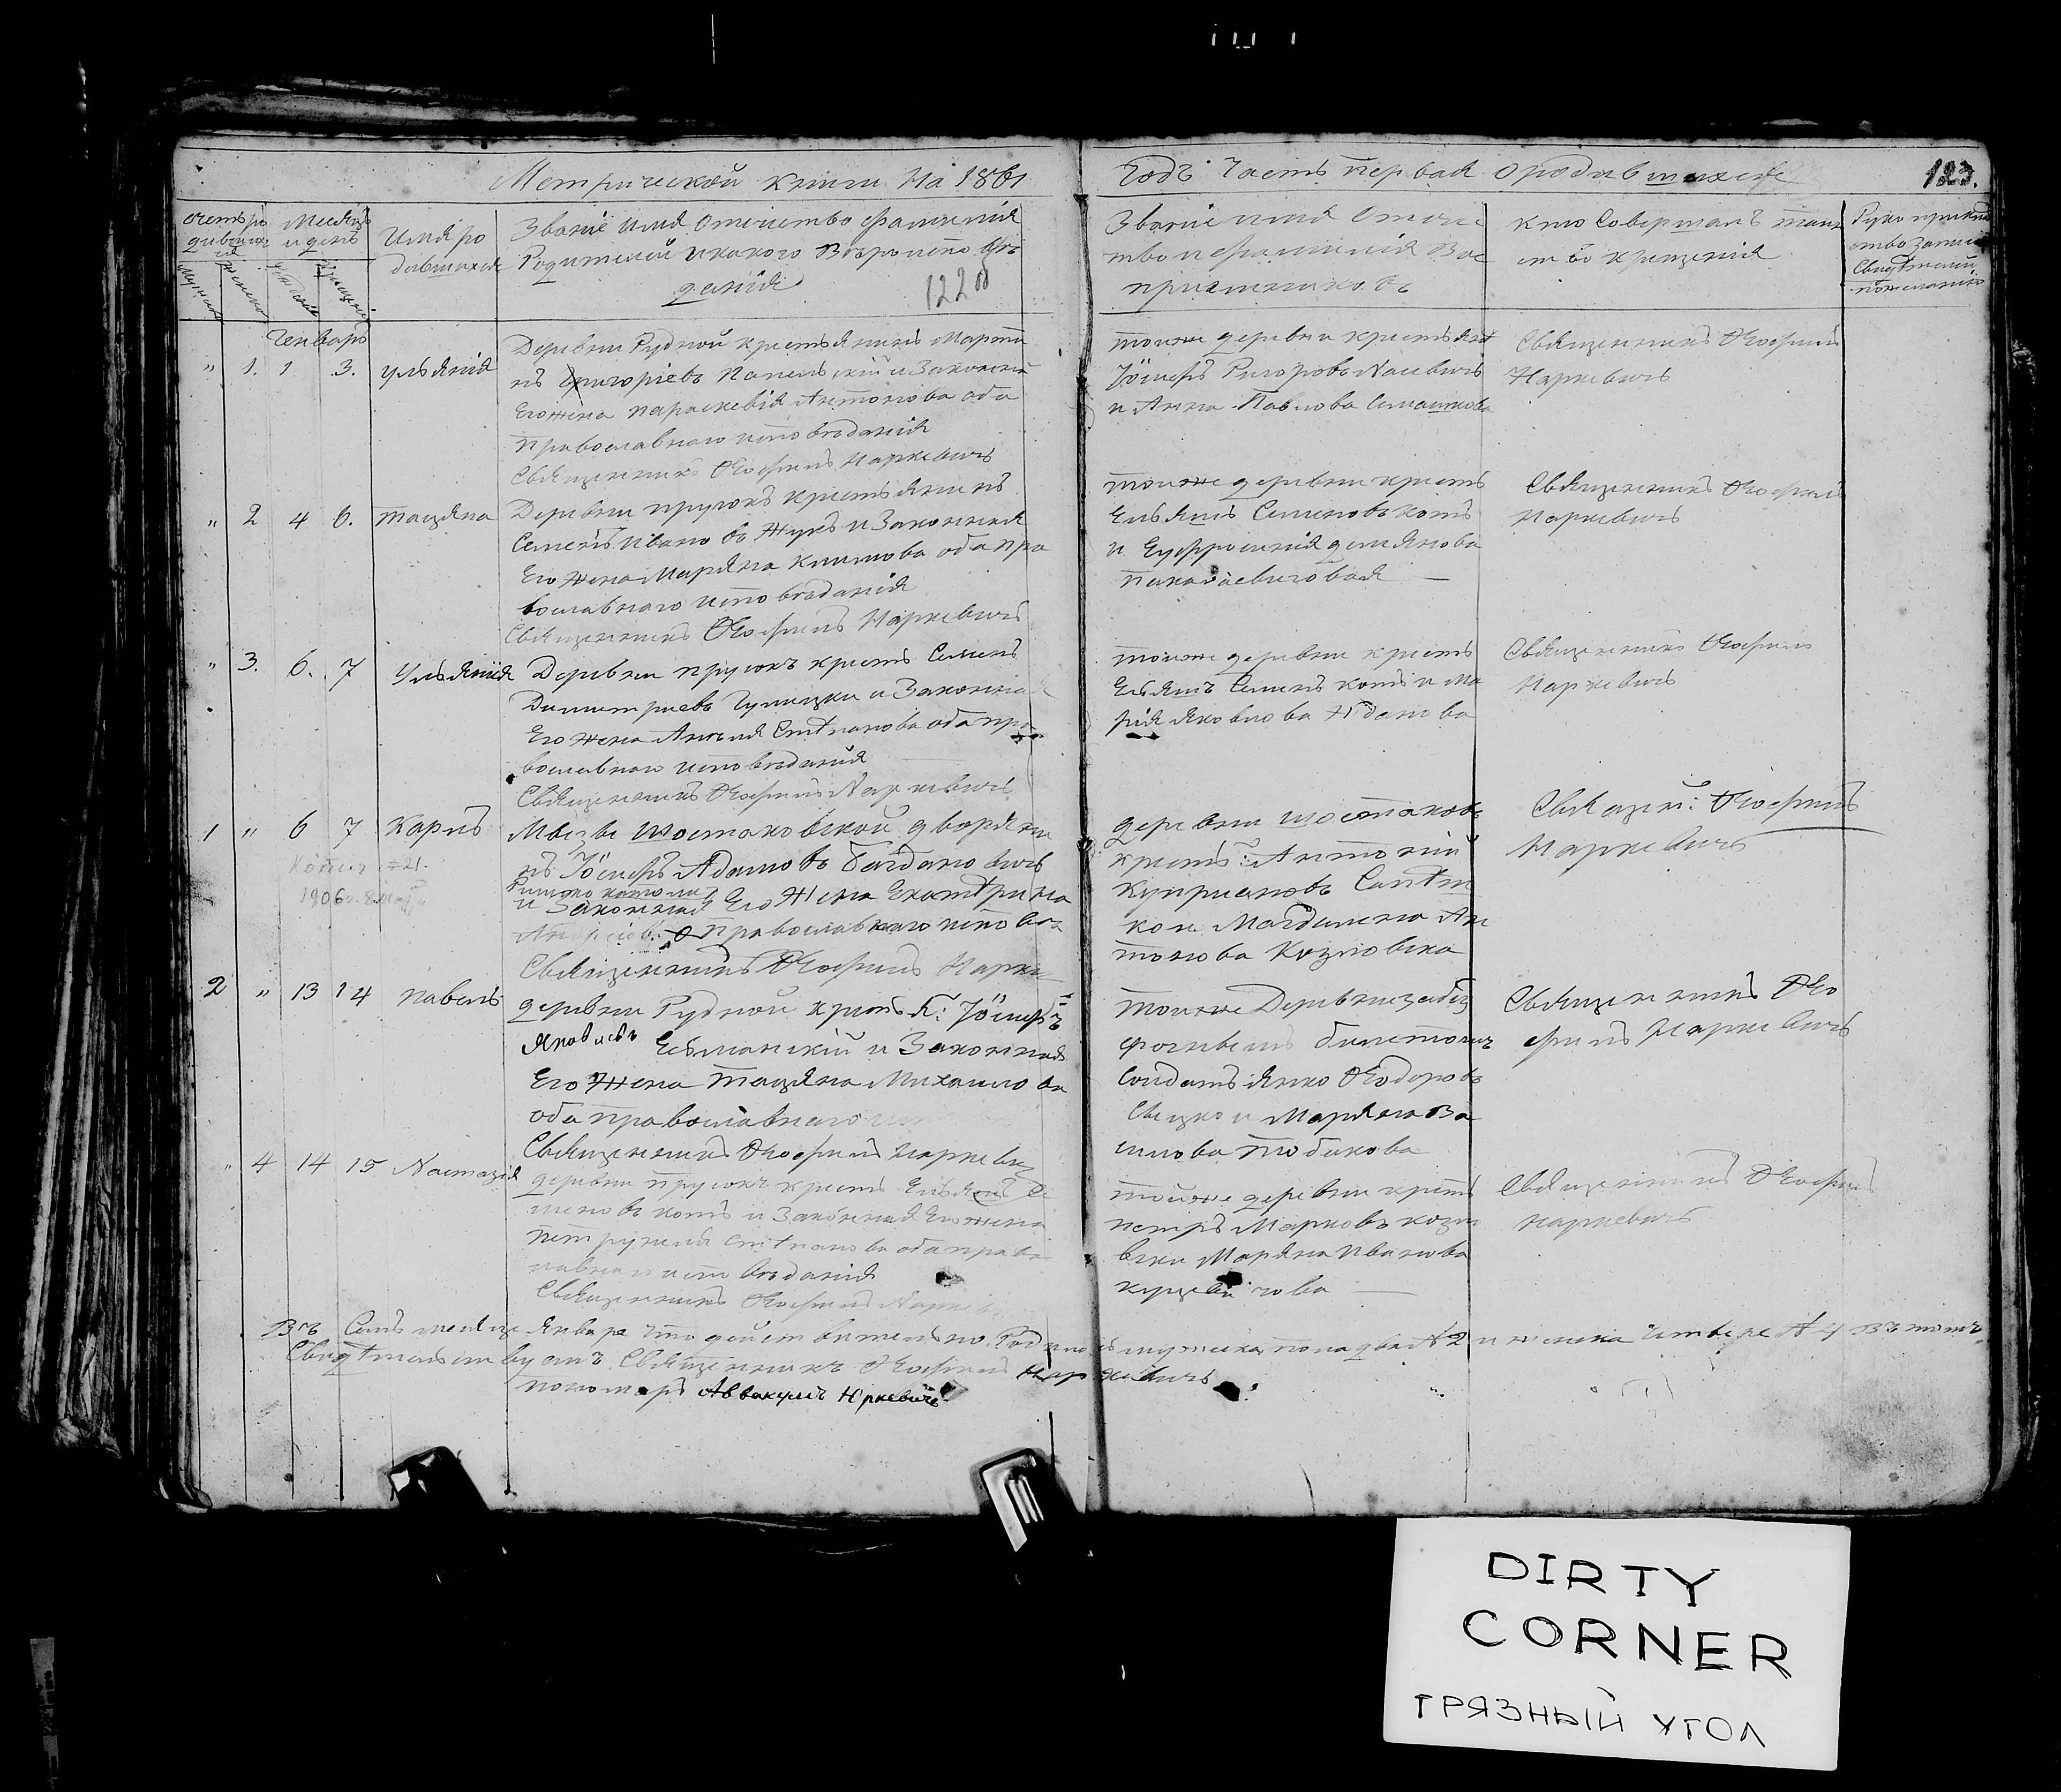 Метрической книги на 1861
Годъ Часть первая о родившихся
123.
Счетъ ро
дивших
ся
Месяцъ
и день
Имя ро
дившихся
Званіе имя отчество фамилія
Родителей и какого Вѣроисповѣ
данія
1220
Званіе имя Отче
тво и фамилія Вос
пріемниковъ
Кто Совершалъ таин
ство крещенія
Руко приклад
ство
Свидѣтелей
по желанію
Генваръ
" 1. 1 3. Ульянія
Деревни Рудной крестьянинъ Марти
нъ Григоріевъ и Законная
Его жена Параскевія Антонова оба
православнаго исповѣданія
Священникъ Ѳеофилъ Маркевичъ
тойже деревни крестьян
Іосифъ
и Анна Павлова
Священникъ Ѳеофилъ
Маркевичъ
" 2 4 6. Тацяна
Деревни Прусокъ крестьянинъ
Семенъ Ивановъ Жукъ и Законная
Его Жена Марьяна Климова оба пра
вославнаго исповѣданія
Священникъ Ѳеофилъ Маркевичъ
тойже деревни крестъ
Ельяшъ Семеновъ Котъ
и Еуфросинія Демянова
Священникъ Ѳеофилъ
Маркевичъ
" 3. 6. 7 Ульянія
Деревни Прусокъ крестъ Семенъ
Димитріевъ и Законная
Его Жена Анелія Стѣпанова оба пра
вославнаго исповѣданія
Священникъ Ѳеофилъ Маркевичъ
тойже деревни крестъ
Ельяшъ Семенъ Котъ и Ма
рія Яковлова Жданова
Священникъ Ѳеофилъ
Маркевичъ
1 " 6 7 Карлъ
1906
Мызы Шостаковской дворяни
нъ Іосифъ Адамовъ Багдановичъ
Римско католик
и Законная Его Жена Екатѣрина
Православнаго испов
Священникъ Ѳеофилъ Марке
деревни Шостаковъ
крестъ: Антоній
Купріановъ
Магдалена Ан
тонова Козловска
Священ: Ѳеофилъ
Маркевичъ
2 " 13 14 Павелъ
деревни Рудной крестья: Іосифъ
Яковлевъ Ельманскій и Законная
Его Жена Тацяна Михаилова
оба православнаго
Священникъ Ѳеофилъ Маркевич
тойже Деревни
билетомъ
Солдатъ Янко Ѳеодоровъ
и Марьяна Ва
силова
Священникъ Ѳео
филъ Маркевичъ
" 4 14 15 Настазія
деревни Прусокъ крестъ Ельяшъ Се
меновъ Котъ и Законная Его жена
Петрунеля Стѣпанова оба право
лавнаго исповѣданія
Священникъ Ѳеофилъ Марке
тойже деревни крестъ
Петръ Марковъ Козло
вски Марьяна Иванова
Священникъ Ѳеофилъ
Маркевичъ
Въ Семъ месяце Январе что действительно Родилось мужеска пола два № 2 и женска Четыре № 4 въ томъ
Свидѣтельствуемъ Священникъ Ѳеофилъ Маркевичъ
пономаръ Аввакумъ Юркевичъ
DIRTY
CORNER
ГРЯЗНЫЙ УГОЛ